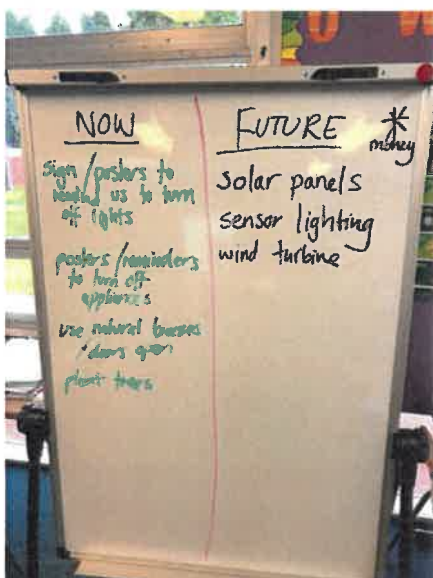 NOW
sign/posters to
remind us to turn
off lights
posters/reminders
to turn off
appliances
use natural breezes
/doors open
plant trees
FUTURE
* money
solar panels
sensor lighting
wind turbine